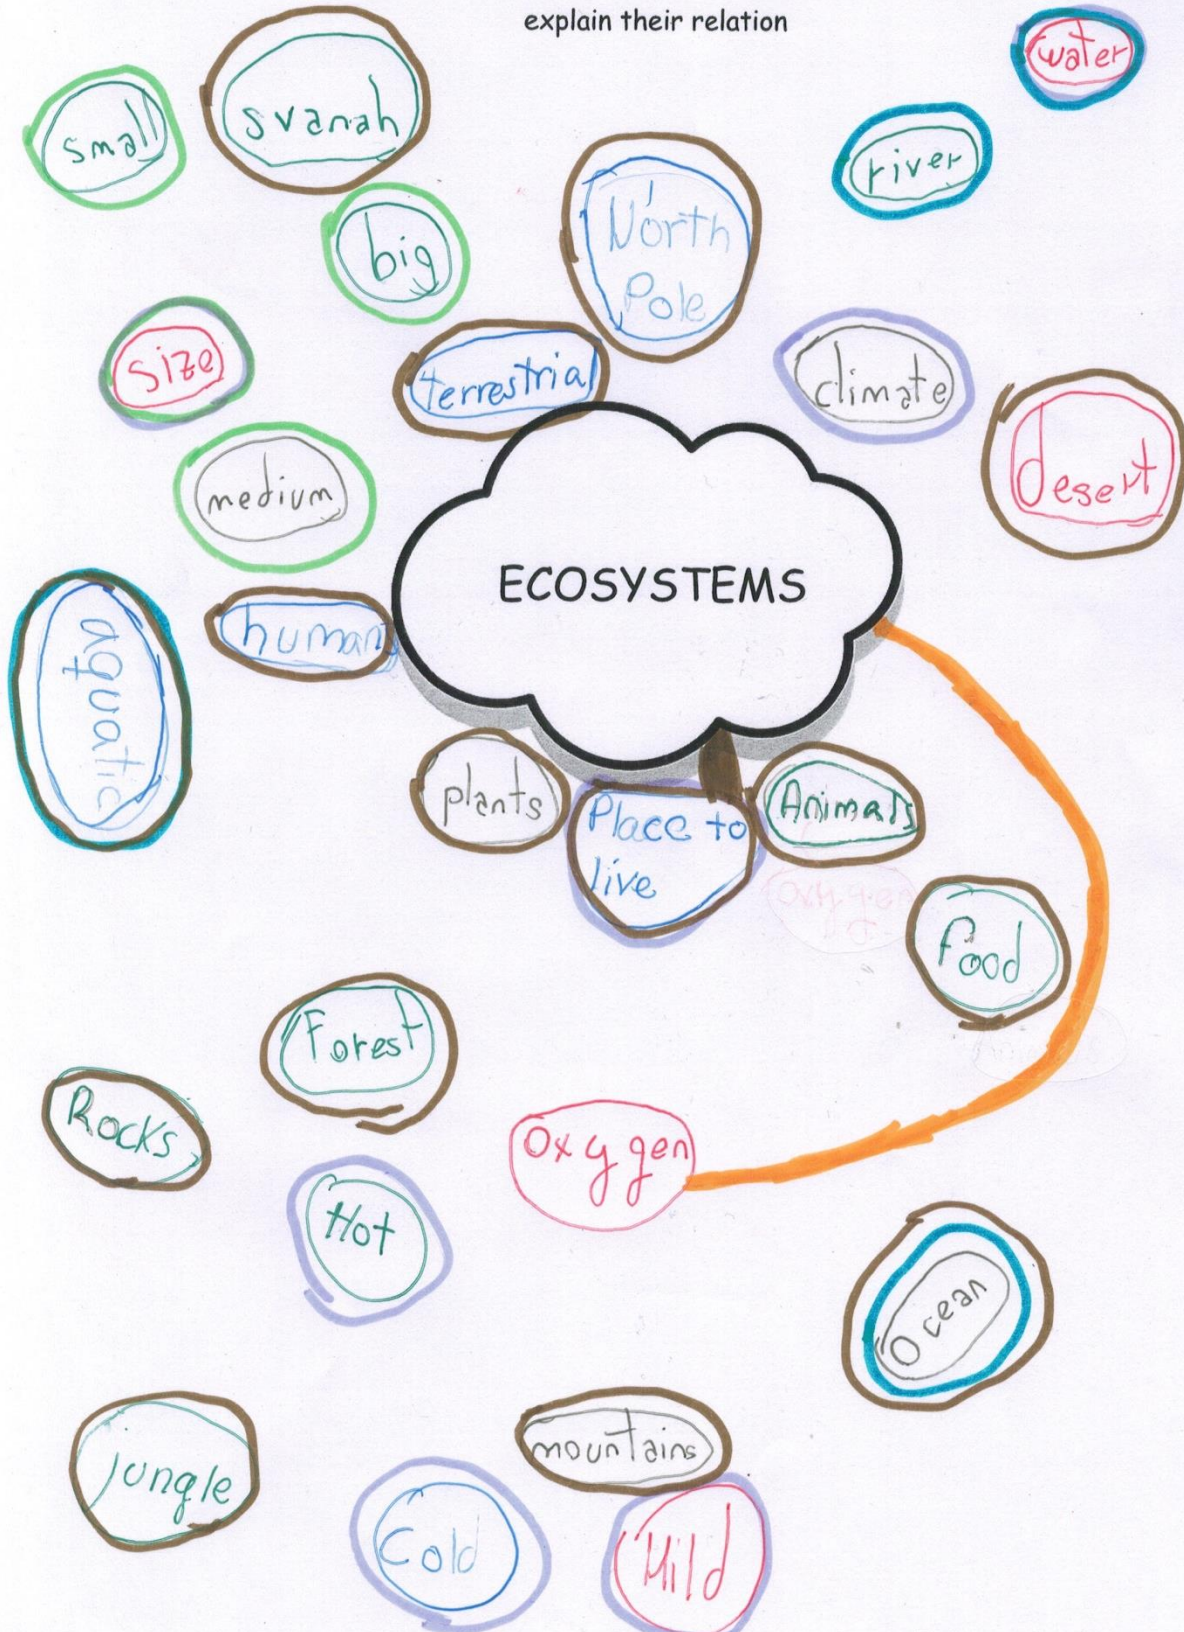 explain their relation
water
small
svanah
river
big
North
Pole
size
terrestrial
climate
desert
medium
ECOSYSTEMS
human
aquatic
plants
Place to
live
Animals
Oxygen
food
Forest
Rocks
Oxygen
Hot
Ocean
jungle
mountains
Cold
Mild